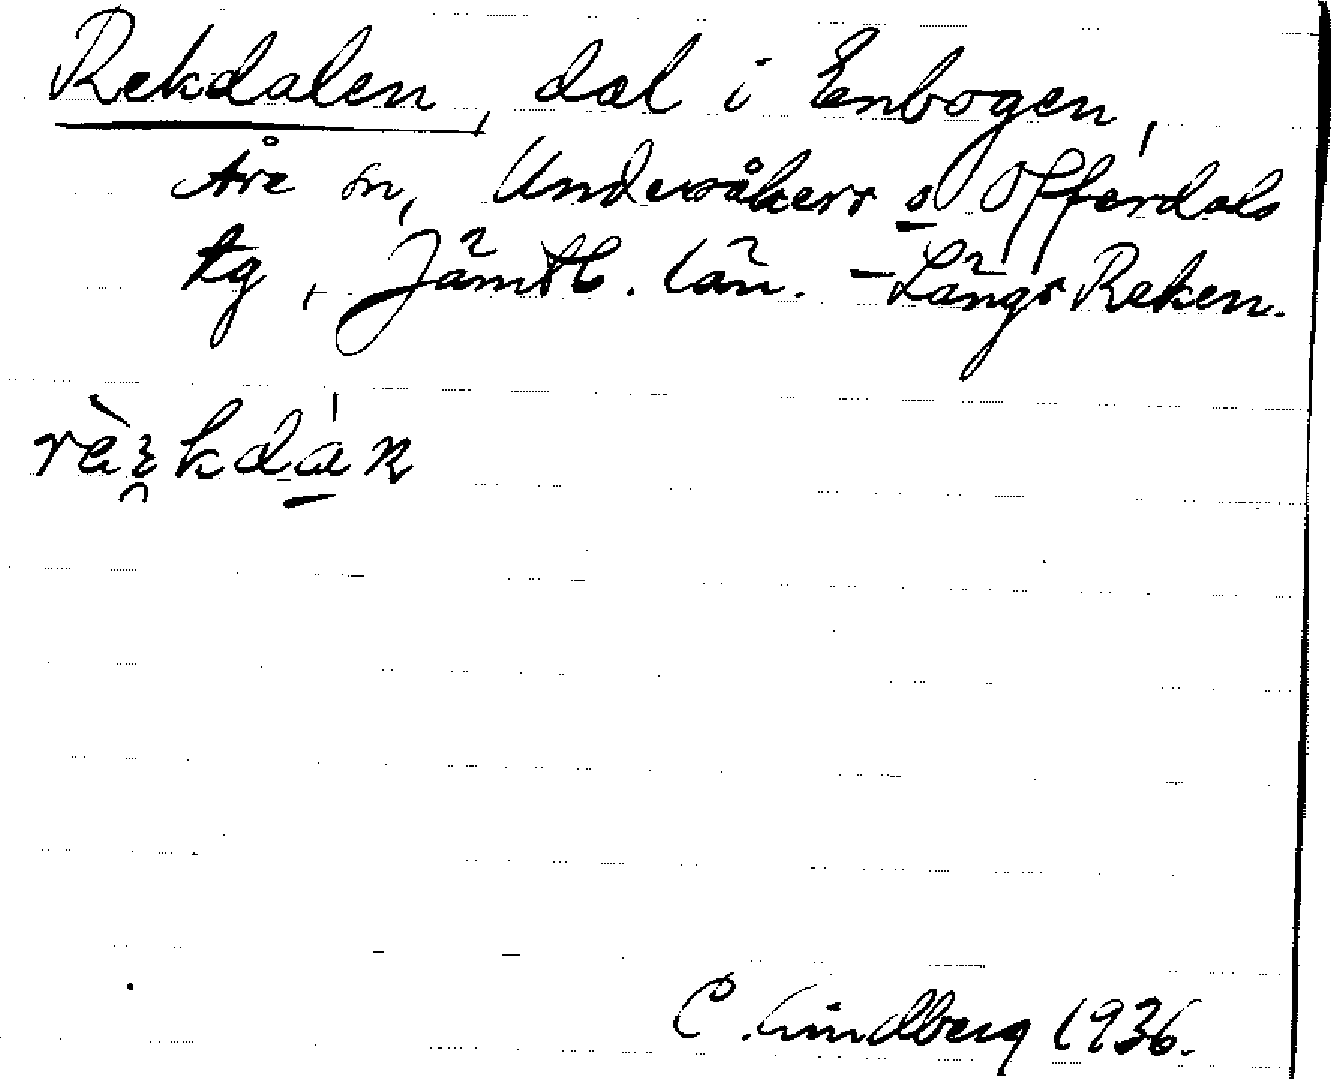 Rekdalen, dal i Enbogen,
Åre sn, Undersåkers o Offerdals
tg, Jämtl. län. – Längs Reken.
C. Lindberg 1936.